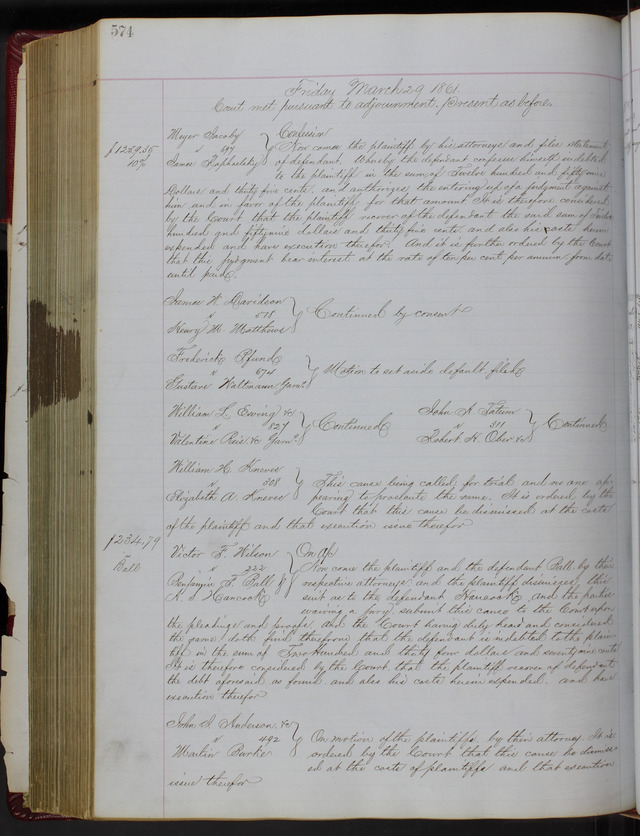 574
Friday March 29 1861.
Court met pursuant to adjournment, present as before.
Meyer Jacoby
v 597
James Raphalsky
Confession
$1259.35
10%
Now comes the plaintiff by his attorneys and files statement
of defendant. Whereby the defendant confesses himself indebted
to the plaintiff in the sum of Twelve hundred and fifty nine
Dollars and thirty five cents, and authorizes the entering up of a judgment against
him and in favor of the plaintiff for that amount. It is therefore considered
by the Court that the plaintiff recover of the defendant the said sum of Twelve
hundred and fifty nine dollars and thirty five cents and also his costs herein
expended and have execution therefor. And it is further ordered by the Court
that this judgment bear interest at the rate of ten per cent per annum from date
until paid.
James W. Davidson
v 578
Henry M. Matthews
Continued by consent
Frederick Pfund
v 674
Gustave Waltmann Garn.
Motion to set aside default filed
William L. Ewing &c
v 827
Valentine Reis &c Garn.
Continued
John A. Tatum
v 311
Robert H. Ober &c
Continued
William H. Kneves
v 308
Elizabeth A. Kneves
This cause being called for trial and no one ap-
pearing to prosecute the same. It is ordered by the
Court that this cause be dismissed at the costs
of the plaintiff and that execution issue therefor
$234.79
Bell
Victor F. Wilson
v 222
Benjamin F. Bell &
Hancock
On
Now come the plaintiff and the defendant Bell by their
respective attorneys, and the plaintiff dismisses this
suit as to the defendant Hancock, and the parties
waiving a jury submit this cause to the Court upon
the pleadings and proofs, and the Court having duly heard and considered
the same doth find therefrom that the defendant is indebted to the plain-
tiff in the sum of Two Hundred and thirty four dollars and seventy nine cents
It is therefore considered by the Court that the plaintiff recover of defendant
the debt aforesaid as found and also his costs herein expended. and have
execution therefor
John J. Anderson &c
v 492
Martin Burke
On motion of the plaintiffs, by their attorney. It is
ordered by the Court that this cause be dismiss-
ed at the costs of plaintiffs and that execution
issue therefor